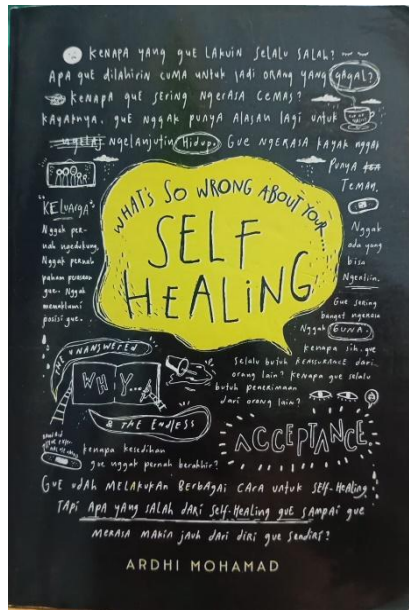 KENAPA YANG GUE LAKUIN SELALU SALAH?
APA GUE DILAHIRIN CUMA UNTUK JADI ORANG YANG GAGAL?
KENAPA GUE SERING NGERASA CEMAS?
KAYAKNYA, GUE NGGAK PUNYA ALASAN LAGI UNTUK
NGELANJUTIN HIDUP. GUE NGERASA KAYAK NGGAK
PUNYA
TEMAN.
"KELUARGA"
NGGAK PER-
NAH NGEDUKUNG.
NGGAK PERNAH
PAHAM PERASAAN
GUE. NGGAK
MEMAHAMI
POSISI GUE.
WHAT'S SO WRONG ABOUT YOUR...
SELF
HEALING
NGGAK
ADA YANG
BISA
NGERTIIN.
GUE SERING
BANGET NGERASA
NGGAK GUNA.
KENAPA SIH, GUE
SELALU BUTUH REASSURANCE DARI
ORANG LAIN? KENAPA GUE SELALU
BUTUH PENERIMAAN
DARI ORANG LAIN?
THE UNANSWERED
WHY...
& THE ENDLESS
ACCEPTANCE
KENAPA KESEDIHAN
GUE NGGAK PERNAH BERAKHIR?
GUE UDAH MELAKUKAN BERBAGAI CARA UNTUK SELF-HEALING.
TAPI APA YANG SALAH DARI SELF-HEALING GUE SAMPAI GUE
MERASA MAKIN JAUH DARI DIRI GUE SENDIRI?
ARDHI MOHAMAD